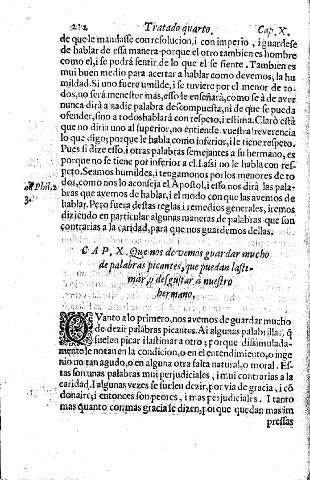 212 Tratado quarto. Cap. X.
de que le mandasse con resolucion, i con imperio, i guardese
de hablar de essa manera porque el otro tambien es hombre
como el, i se podrá sentir de lo que el se siente. Tambien es
mui buen medio para acertar a hablar como devemos, la hu
mildad. Si uno fuere umilde, i se tuviere por el menor de to-
dos, no será menester mas, esso le enseñará, como se á de aver
nunca dirà a nadie palabra descompuesta, ni de que se pueda
ofender, sino a todos hablará con respeto, i estima. Claro està
que no diria uno al superior, no entiende vuestra reverencia
lo que digo; porque le habla como inferior, i le tiene respeto.
Pues si dize esso, i otras palabras semejantes a su hermano, es
porque no se tiene por inferior a el. I assi no le habla con res-
peto. Seamos humildes, i tengamonos por los menores de to
dos, como nos lo aconseja el Apostol, i esso nos dirà las pala-
bras que avemos de hablar, i el modo con que las avemos de
hablar. Pero fuera destas reglas i remedios generales, iremos
diziendo en particular algunas maneras de palabras que son
contrarias a la caridad, para que nos guardemos dellas.
Phil. 2
3.
CAP. X. Que nos devemos guardar mucho
de palabras picantes, que puedan lasti-
mar, o desgustar a nuestro
hermano.
QVanto a lo primero, nos avemos de guardar mucho
de dezir palabras picantes. Ai algunas palabrillas, q̃
suelen picar i lastimar a otro; porque dissimulada-
mente le notan en la condicion, o en el entendimiento, o inge
nio no tan agudo, o en alguna otra falta natural, o moral. Es-
tas son unas palabras mui perjudiciales, i mui contrarias a la
caridad. I algunas vezes se suelen dezir, por via de gracia, i cõ
donaire; i entonces son peores, i mas perjudiciales. I tanto
mas quanto con mas gracia se dizen, porque quedan mas im
pressas